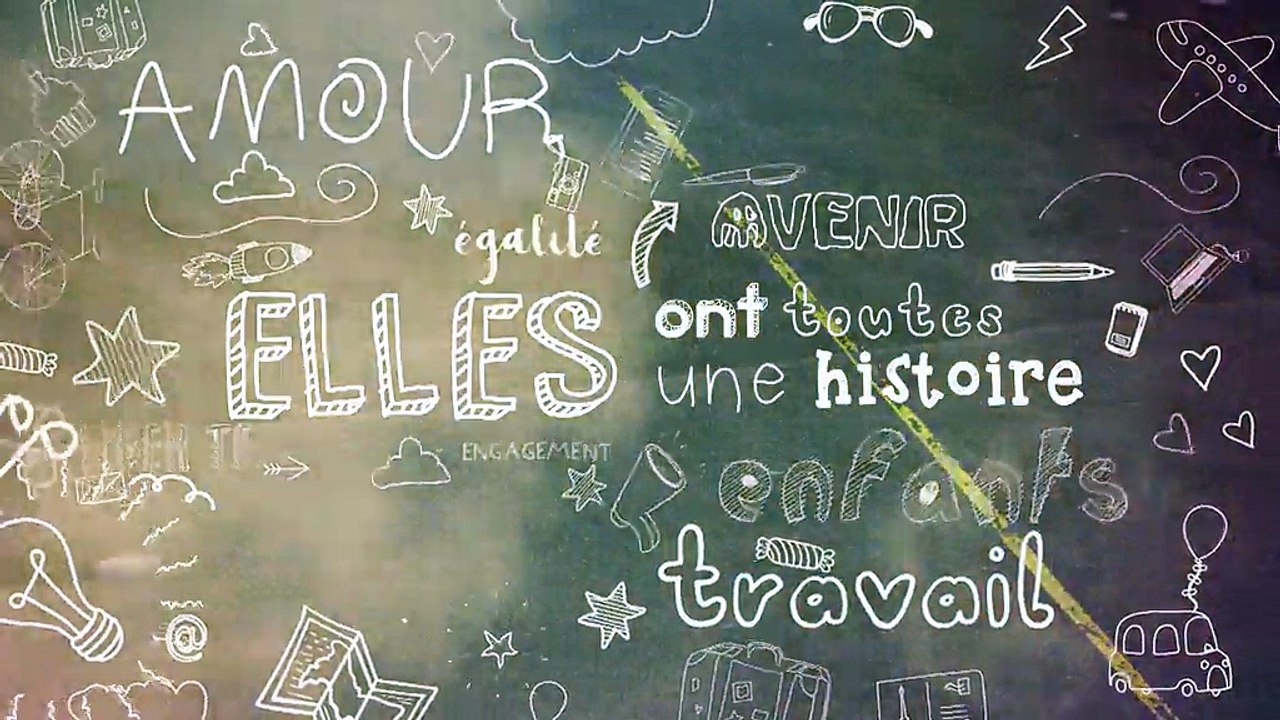 AMOUR
égalité
AVENIR
ELLES
ont toutes
une histoire
ENGAGEMENT
enfants
travail
@